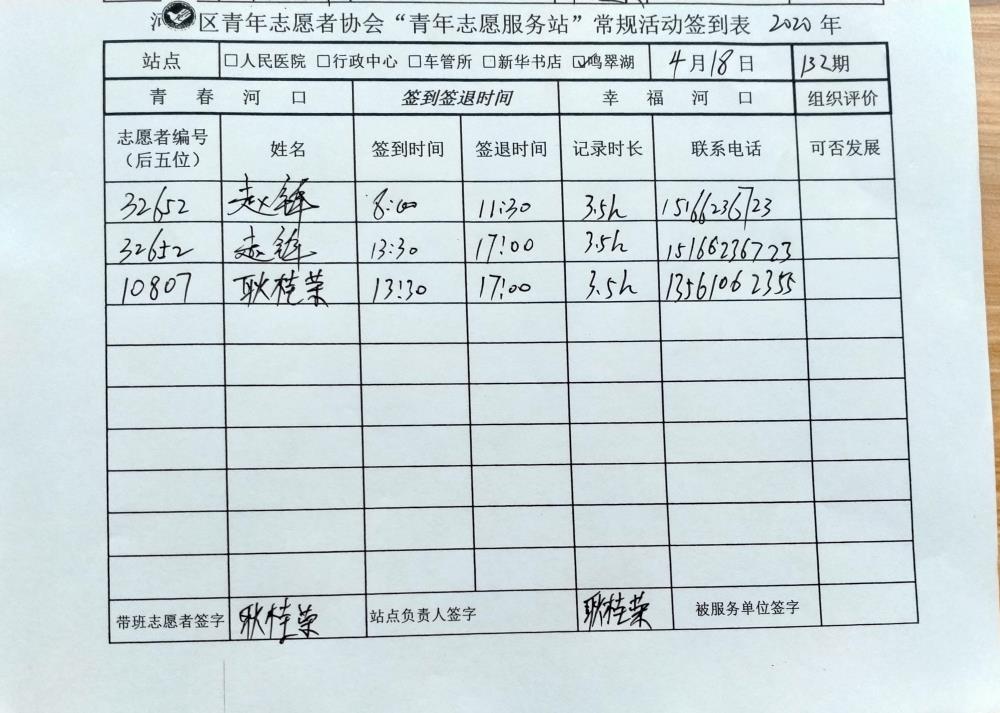 河区青年志愿者协会“青年志愿服务站”常规活动签到表 2020 年
站点 □人民医院 □行政中心 □车管所 □新华书店 ☑鸣翠湖 4月18日 132期
青春河口 签到签退时间 幸福河口 组织评价
志愿者编号（后五位） 姓名 签到时间 签退时间 记录时长 联系电话 可否发展
32652 赵 8:00 11:30 3.5h 15166236723
32652 赵 13:30 17:00 3.5h 15166236723
10807 耿桂荣 13:30 17:00 3.5h 13561062355
带班志愿者签字 耿桂荣 站点负责人签字 耿桂荣 被服务单位签字